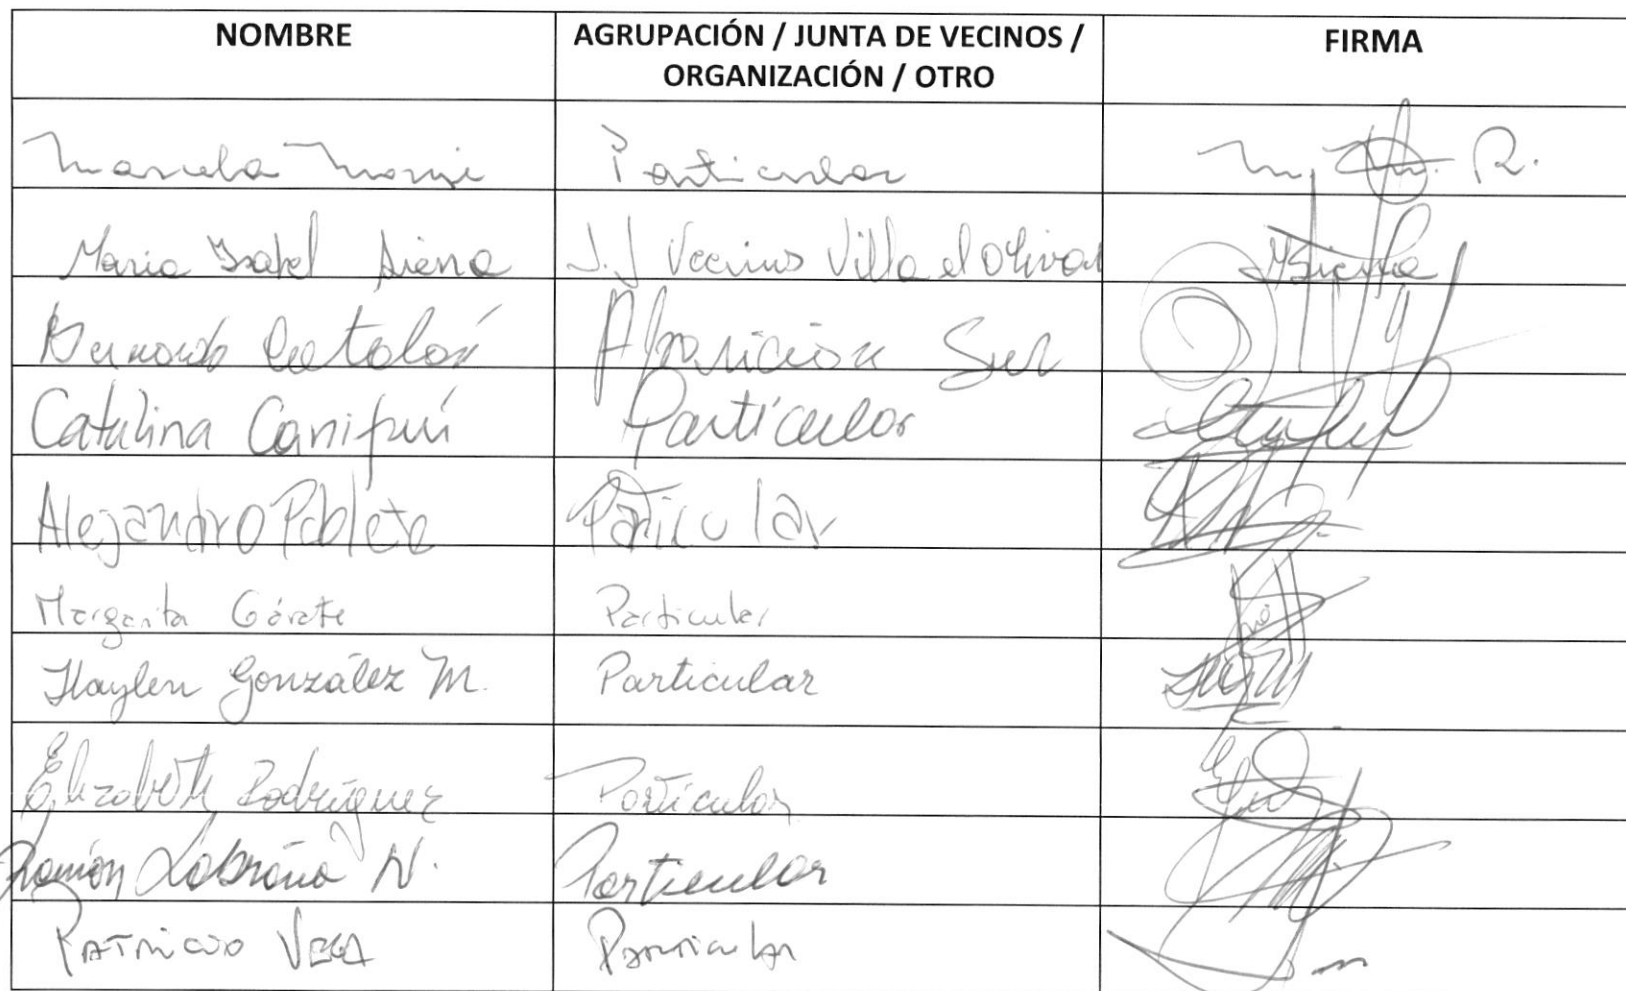 NOMBRE AGRUPACIÓN / JUNTA DE VECINOS / FIRMA
ORGANIZACIÓN / OTRO
Marcela Particular
Maria Isabel Siena J.J Vecinos Villa el Olivar
Bernardo Catalán Aparicion Sur
Catalina Canifrú Particular
Alejandro Poblete Particular
Margarita Gárate Particular
Haylen González M. Particular
Elizabeth Rodríguez Particular
Ramón Labraña N. Particular
PATRICIO VEGA Particular